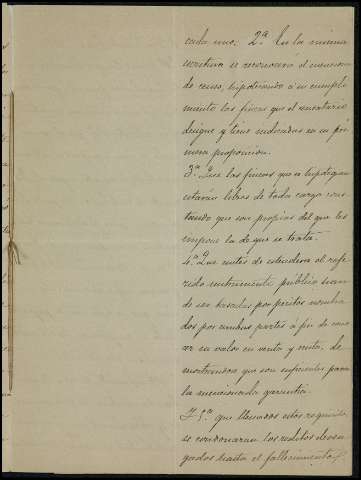 cada uno: 2ª En la misma
escritura se reconocerá el
de censo, hipotecando á su cumpli
miento las fincas que el censatario
designe y tiene indicadas en su pri
mera proposicion.
3ª Que las fincas que se hipotequen
estarán libres de toda carga cons
tando que son propias del que las
impone la de que se trata.
4ª Que antes de estenderse el refe
rido instrumento público han
de ser tasadas por peritos nombra
dos por ambas partes á fin de
su valor en venta y renta, de
mostrandose que son suficientes para
la mencionada garantia.
Y 5ª que llenados estos requisitos
se condonaran los reditos deven
gados hasta el fallecimiento